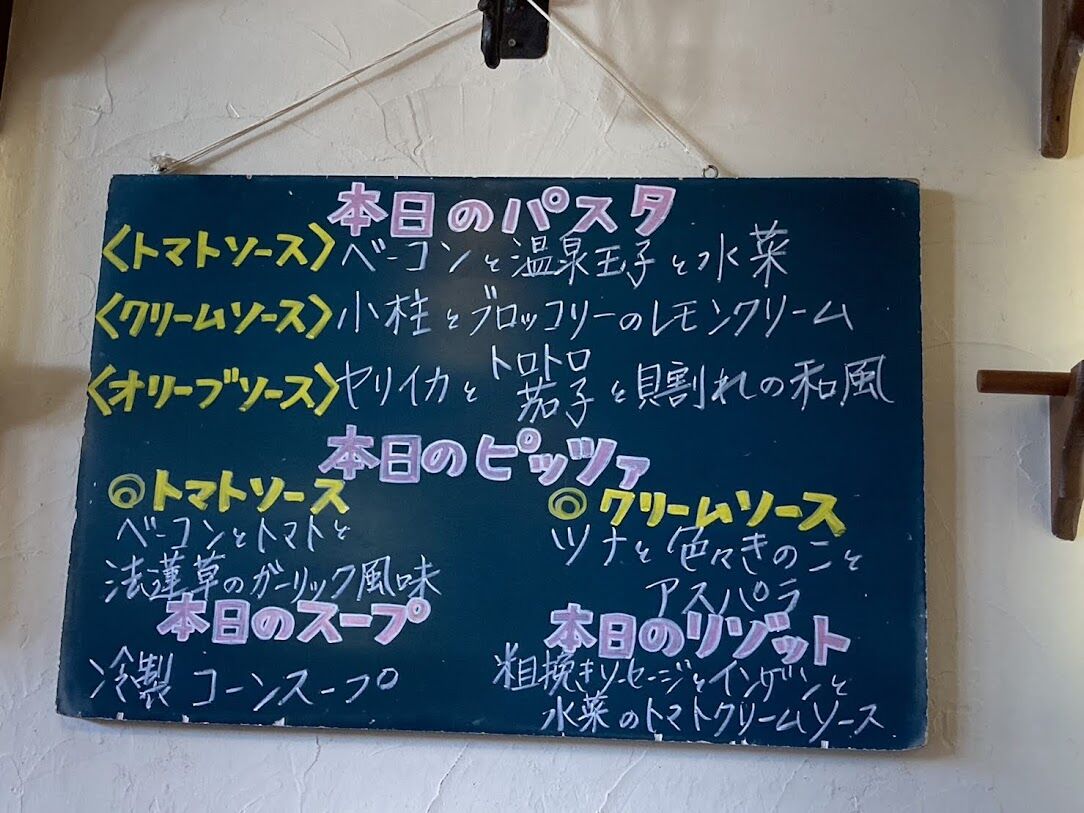 本日のパスタ
〈トマトソース〉ベーコンと温泉玉子と水菜
〈クリームソース〉小柱とブロッコリーのレモンクリーム
〈オリーブソース〉ヤリイカとトロトロ茄子と貝割れの和風
本日のピッツァ
◎トマトソース
ベーコンとトマトと
法蓮草のガーリック風味
◎クリームソース
ツナと色々きのこと
アスパラ
本日のスープ
冷製コーンスープ
本日のリゾット
粗挽きソーセージとインゲンと
水菜のトマトクリームソース